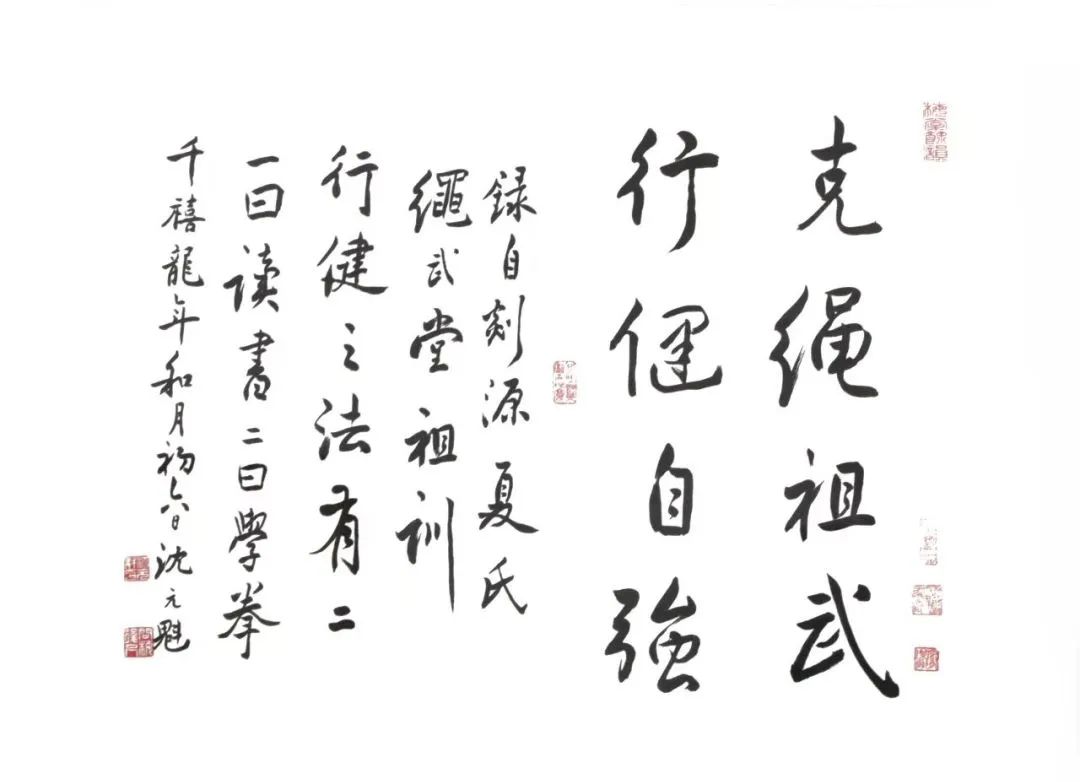 克绳祖武
行健自強
録自剡源夏氏
繩武堂祖训
行健之法有二
一曰读書二曰學拳
千禧龍年和月初六日沈元魁